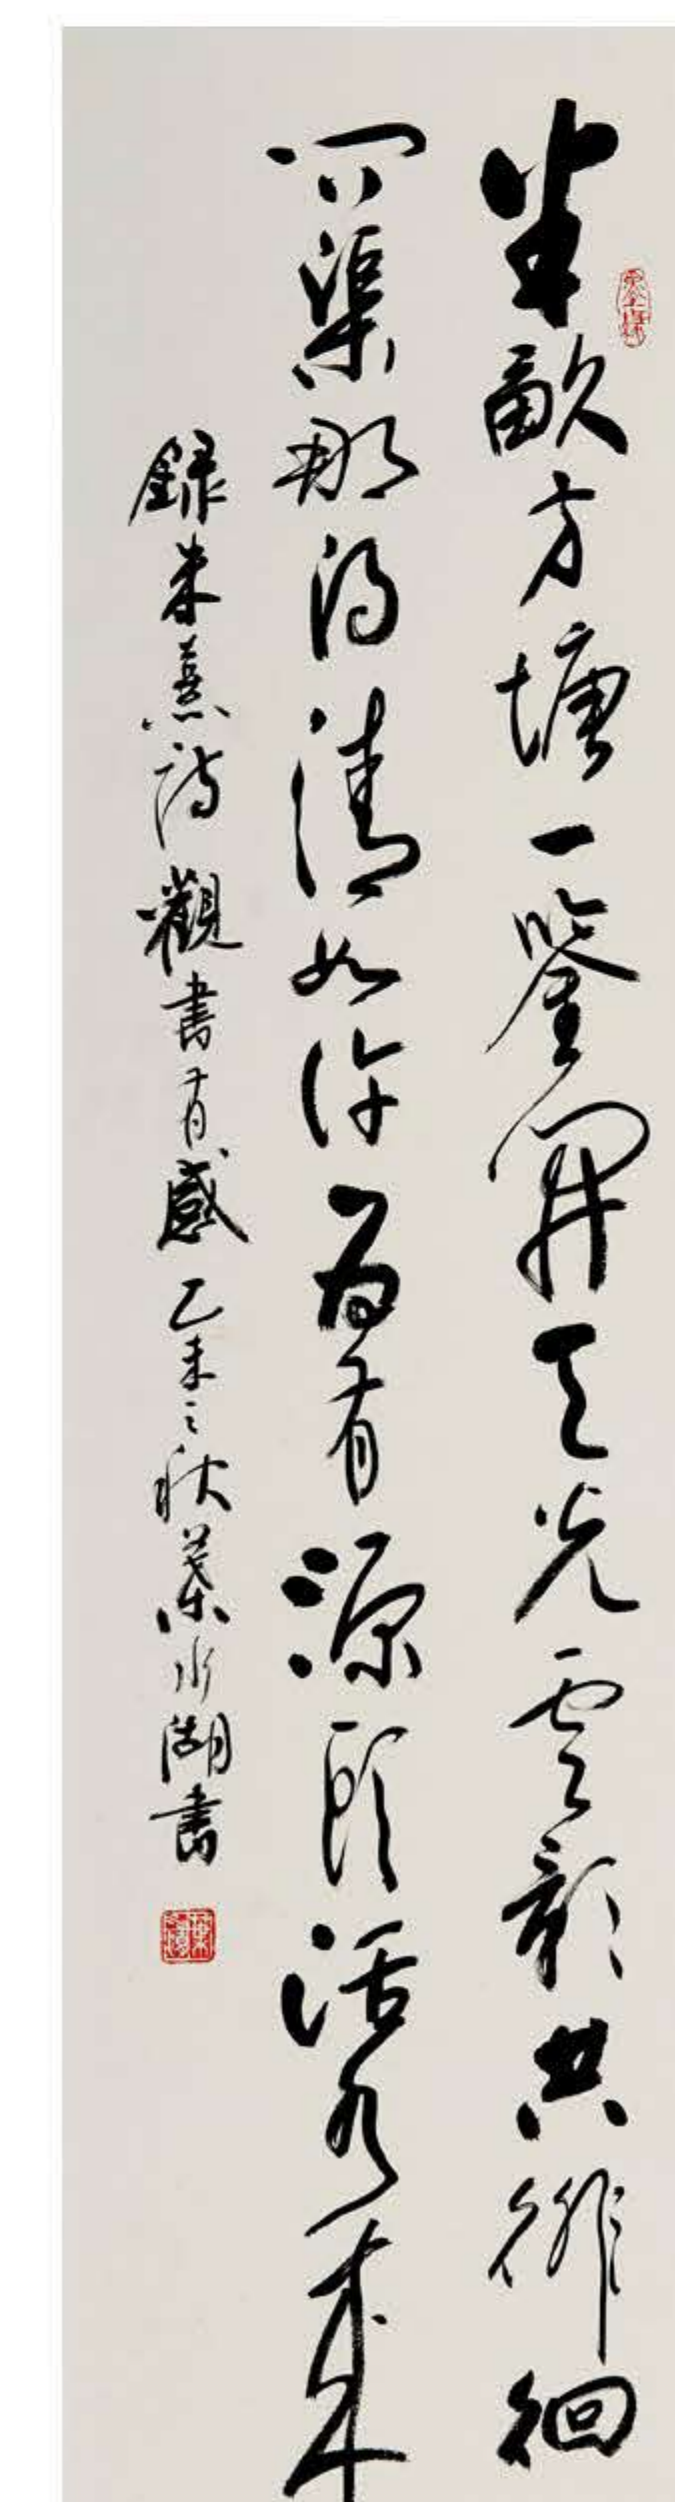 半畝方塘一鑒開天光雲影共徘徊
問渠那得清如許為有源頭活水來
録朱熹詩觀書有感乙未之秋葉水湖書